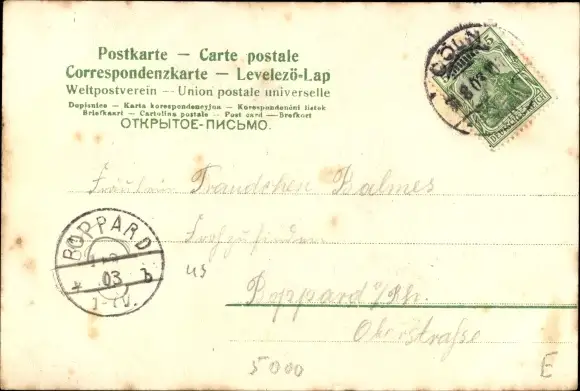 Postkarte – Carte postale
Correspondenzkarte – Levelezö-Lap
Weltpostverein – Union postale universelle
Dopisnice – Karta korespondencyjna – Korespondenční lístek
Briefkaart – Cartolina postale – Post card – Brefkort
ОТКРЫТОЕ-ПИСЬМО.
CÖLN
5
03
DEUTSCHES REICH
Fräulein Traudchen Balmes
BOPPARD
03 b
1-IV.
45
Boppard a/Rh.
Oberstraße
5000
E